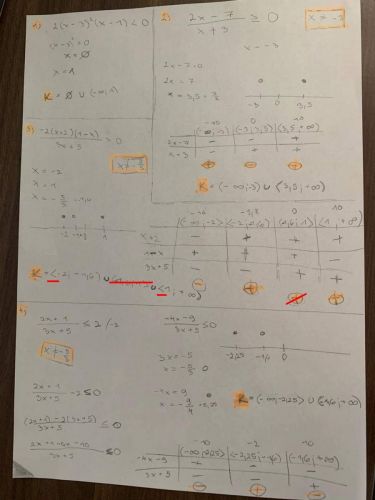 1) 2(x-3)²(x-1) < 0
(x-3)² = 0
x = ∅
x = 1
K = ∅ ∪ (-∞, 1)
2) (2x-7)/(x+3) ≥ 0
x ≠ -3
x = -3
2x-7=0
2x = 7
x = 3,5 = 7/2
-3 0 3,5
-10 0 10
(-∞,-3) (-3, 3,5) (3,5, +∞)
2x-7 - - +
x+3 - + +
+ - +
K = (-∞,-3) ∪ (3,5, +∞)
3) -2(x+2)(1-x)/(3x+5) ≥ 0
x ≠ -5/3
x = -2
x = 1
x = -5/3 = -1,6
-2 -1,6 1
-10 -1,8 0 10
(-∞, -2) (-2, -1,6) (-1,6, 1) (1, +∞)
x+2 - + + +
3x+5 - - + +
K = <-2, -1,6) ∪ <1, +∞)
4) (2x+1)/(3x+5) ≤ 2 /-2
x ≠ -5/3
(2x+1)/(3x+5) - 2 ≤ 0
(2x+1)-2(3x+5)/(3x+5) ≤ 0
(2x+1-6x-10)/(3x+5) ≤ 0
(-4x-9)/(3x+5) ≤ 0
3x = -5
x = -5/3
-4x = 9
x = -9/4 = -2,25
-2,25 -1,6 0
K = (-∞, -2,25) ∪ (-1,6, +∞)
-10 -2 10
(-∞, -2,25) (-2,25, -1,6) (-1,6, +∞)
-4x-9 + - -
3x+5 - - +
- + -